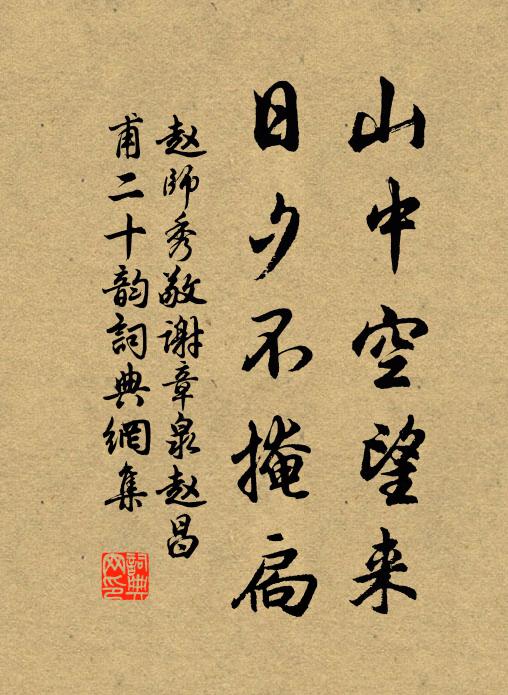 山中空望来
日夕不掩扃
赵師秀敬谢章泉赵昌
甫二十韵詞典網集
詞典
网印